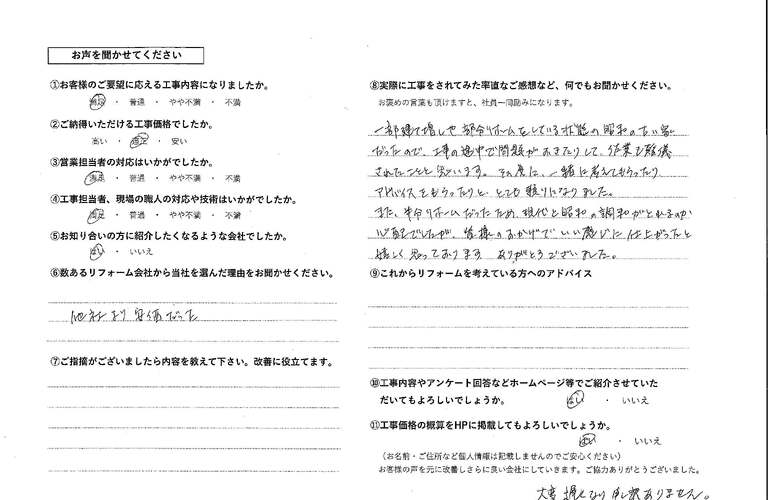 お声を聞かせてください
①お客様のご要望に応える工事内容になりましたか。
満足 ・ 普通 ・ やや不満 ・ 不満
②ご納得いただける工事価格でしたか。
高い ・ 適正 ・ 安い
③営業担当者の対応はいかがでしたか。
満足 ・ 普通 ・ やや不満 ・ 不満
④工事担当者、現場の職人の対応や技術はいかがでしたか。
満足 ・ 普通 ・ やや不満 ・ 不満
⑤お知り合いの方に紹介したくなるような会社でしたか。
はい ・ いいえ
⑥数あるリフォーム会社から当社を選んだ理由をお聞かせください。
他社より安価だった
⑦ご指摘がございましたら内容を教えて下さい。改善に役立てます。
⑧実際に工事をされてみた率直なご感想など、何でもお聞かせください。
お褒めの言葉も頂けますと、社員一同励みになります。
一部建て増しや部分リホームをしている状態の昭和の古い家
だったので、工事の途中で問題がおきたりして、作業も難儀
されたことと思います。その度に、一緒に考えてもらったり
アドバイスをもらったりと、とても頼りになりました。
また、半分リホームだったため、現代と昭和の調和がとれるのか
心配でしたが、皆様のおかげでいい感じに仕上がったと
嬉しく思っております ありがとうございました。
⑨これからリフォームを考えている方へのアドバイス
⑩工事内容やアンケート回答などホームページ等でご紹介させていた
だいてもよろしいでしょうか。 はい ・ いいえ
⑪工事価格の概算をHPに掲載してもよろしいでしょうか。
はい ・ いいえ
（お名前・ご住所など個人情報は記載しませんのでご安心ください）
お客様の声を元に改善しさらに良い会社にしていきます。ご協力ありがとうございました。
大変遅くなり申し訳ありません。